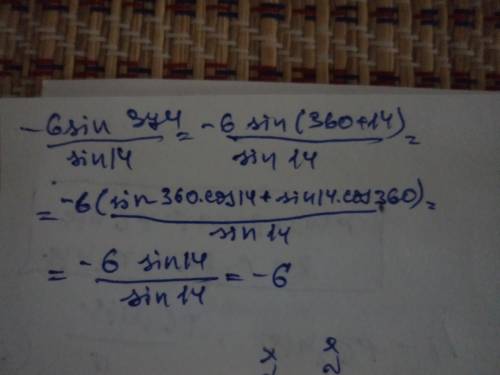 -6sin 374/sin14 = -6 sin(360+14)/sin 14 =
= -6(sin 360.cos14 + sin14.cos360)/sin 14 =
= -6 sin14/sin 14 = -6